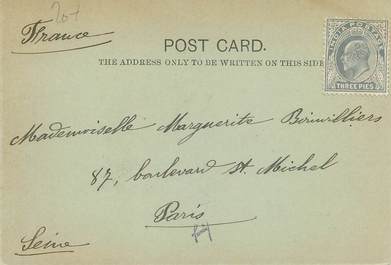 20+
France
POST CARD.
THE ADDRESS ONLY TO BE WRITTEN ON THIS SIDE
INDIA POSTAGE
THREE PIES
Mademoiselle Marguerite
87, boulevard St. Michel
Paris
Seine